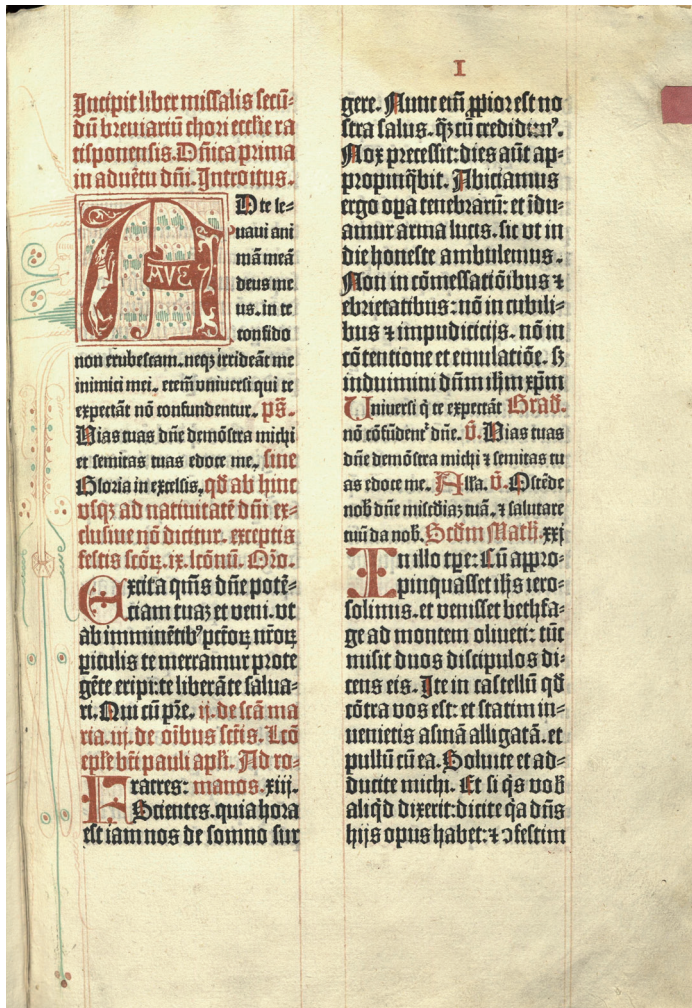 I
Incipit liber missalis secū-
dū breviariū chori ecclīe ra
tisponensis. Dn̄ica prima
in advētu dn̄i. Introitus.
AVE
D te le-
uaui ani
mā meā
deus me
us. in te
confido
non erubescam. neqꝫ irrideāt me
inimici mei. etem̄ vniuersi qui te
expectāt nō confundentur. ps̄.
Vias tuas dn̄e demōstra michi
et semitas tuas edoce me. sine
Gloria in excelsis. qd̄ ab hinc
vsqꝫ ad natiuitatē dn̄i ex-
clusiue nō dicitur. exceptis
festis scōꝝ. ix. lcōnū. Oro.
Excita qm̄s dn̄e potē-
ciam tuaꝫ et veni. vt
ab imminētibꝰ pctōꝝ nr̄oꝝ
ꝑiculis te mereamur prote
gēte eripi: te liberāte salua-
ri. Qui cū pr̄e. ij. de scā ma
ria. iij. de oībus sctīs. Lcō
epl̄e btī pauli apl̄i. Ad ro-
Fratres: manos. xiij.
Scientes. quia hora
est iam nos de somno sur
gere. Nunc em̄ ꝓpior est no
stra salus. q̄ꝫ cū credidimꝰ.
Nox precessit: dies aūt ap-
propinq̄bit. Abiciamus
ergo oꝑa tenebrarū: et īdu-
amur arma lucis. sic vt in
die honeste ambulemus.
Non in cōmessatiōibus ⁊
ebrietatibus: nō in cubili-
bus ⁊ impudicicijs. nō in
cōtentione et emulatiōe. sꝫ
induimini dn̄m ihm̄ xp̄m
Vniuersi q̄ te expectāt Grad̄.
nō cōfūdent᷑ dn̄e. v̄. Vias tuas
dn̄e demōstra michi ⁊ semitas tu
as edoce me. All̄a. v̄. Ostēde
nob̄ dn̄e miscd̄iaꝫ tuā. ⁊ salutare
tuū da nob̄. Scd̄m Math̄. xxj
In illo tꝑe: Cū appro-
pinquasset ihs̄ iero-
solimis. et venisset bethfa-
ge ad montem oliueti: tūc
misit duos discipulos di-
cens eis. Ite in castellū qd̄
cōtra vos est: et statim in-
uenietis asinā alligatā. et
pullū cū ea. Soluite et ad-
ducite michi. Et si q̄s vob̄
aliq̄d dixerit: dicite q̄a dn̄s
hijs opus habet: ⁊ ɔfestim